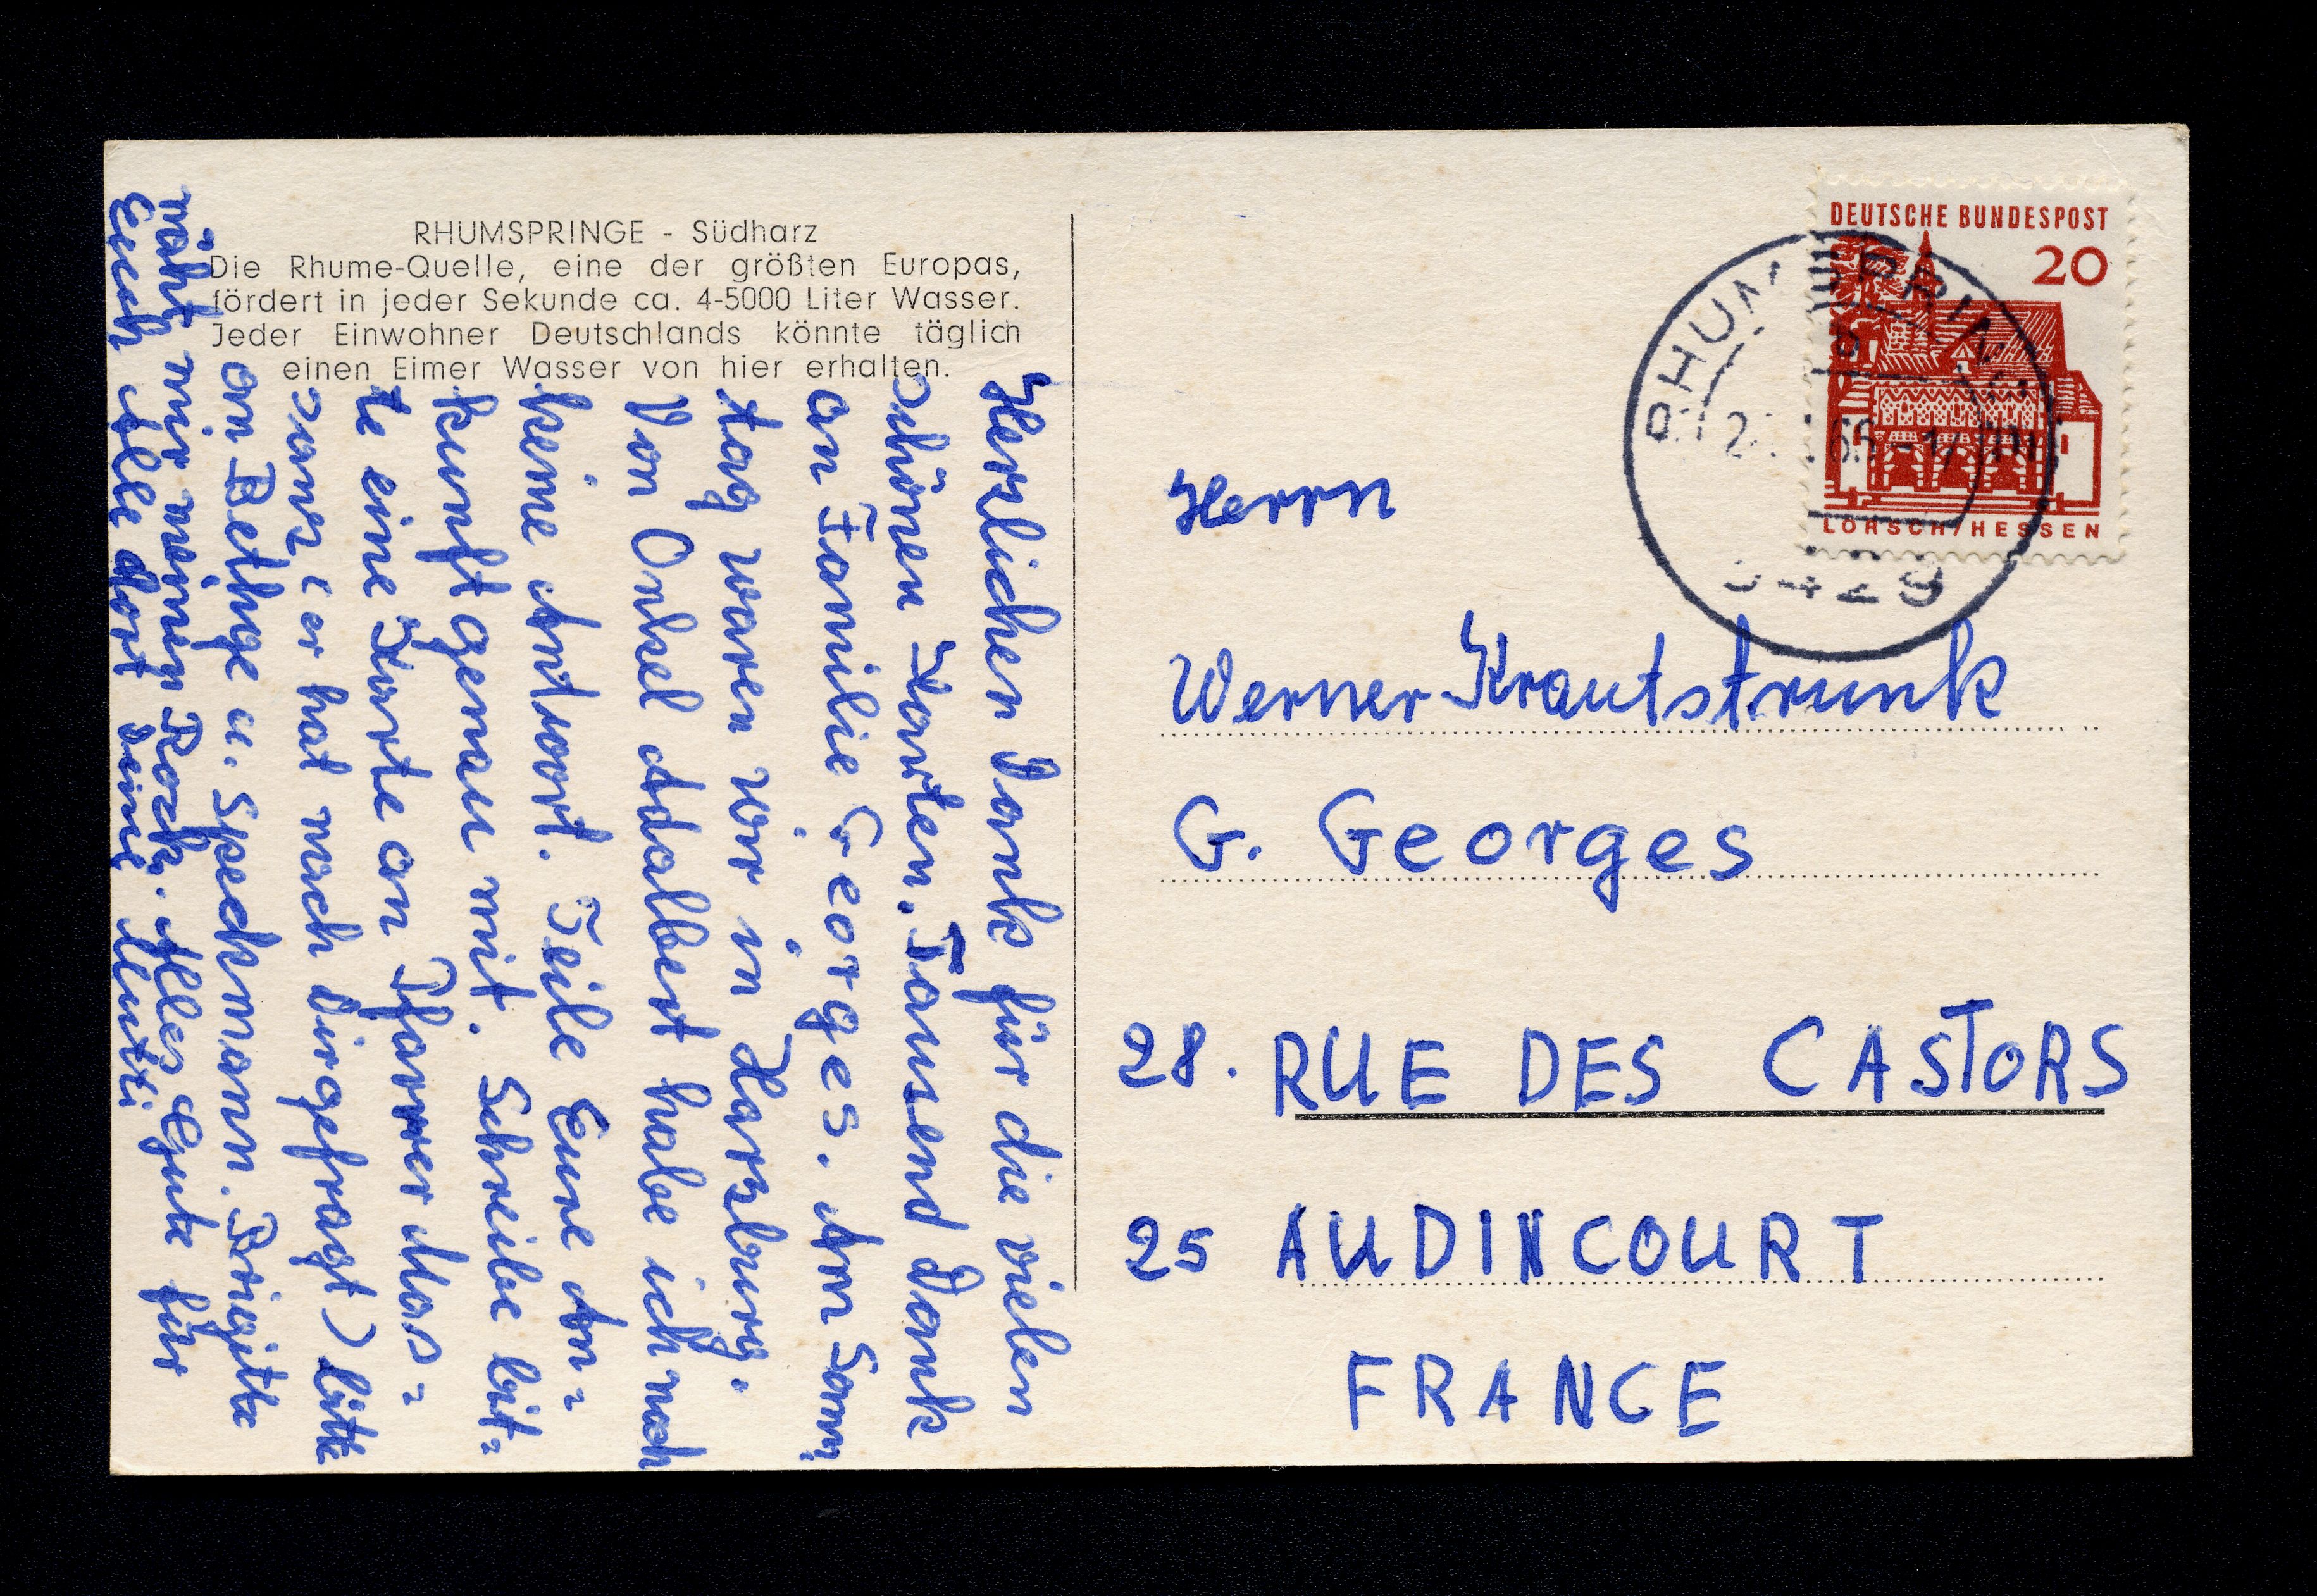 RHUMSPRINGE - Südharz
Die Rhume-Quelle, eine der größten Europas,
fördert in jeder Sekunde ca. 4-5000 Liter Wasser.
Jeder Einwohner Deutschlands könnte täglich
einen Eimer Wasser von hier erhalten.
Herzlichen Dank für die vielen
schönen Karten. Tausend Dank
an Familie Georges. Am Sonn
tag waren wir in Harzburg.
Von Onkel Adalbert habe ich noch
keine Antwort. Teile Eure An=
kunft genau mit. Schreibe bit=
te eine Karte an Pfarrer
(er hat nach Dir gefragt) bitte
an Bethge u. Speckmann. Brigitte
näht mir meinen Rock. Alles Gute für
Euch alle dort Deine Mutti
DEUTSCHE BUNDESPOST
20
LORSCH/HESSEN
RHUMSPRINGE
3429
Herrn
Werner Krautstrunk
G. Georges
28. RUE DES CASTORS
25 AUDINCOURT
FRANCE